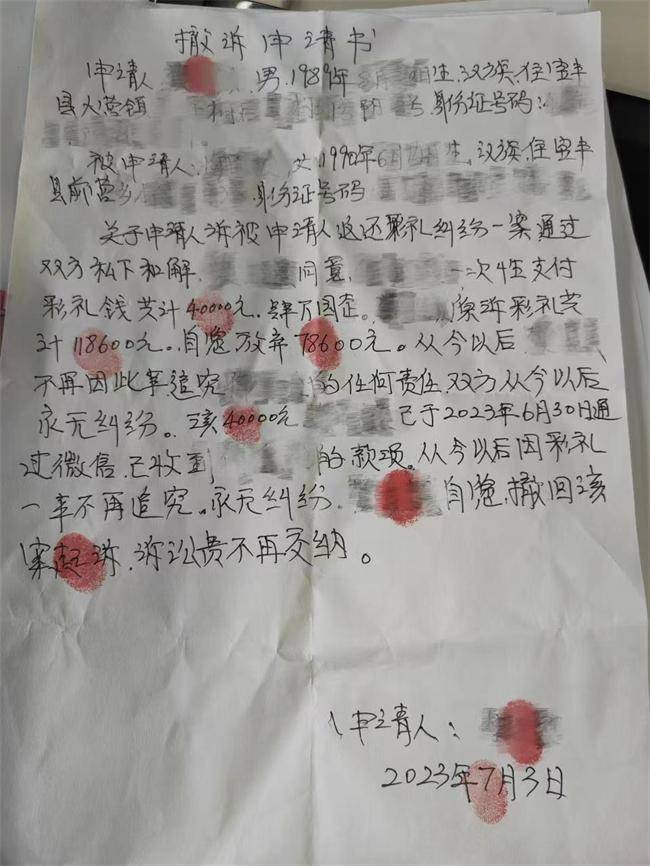 撤诉申请书
申请人 男,1989年 生,汉族,住宝丰
县大营镇 身份证号码:
被申请人: 女1990年6月 生,汉族,住宝丰
县前营乡 身份证号码
关于申请人诉被申请人返还彩礼纠纷一案通过
双方私下和解, 同意, 一次性支付
彩礼钱共计40000元,肆万圆 。 原诉彩礼共
计118600元。自愿放弃78600元。从今以后
不再因此事追究 的任何责任,双方从今以后
永无纠纷。该40000元 已于2023年6月30日通
过微信,已收到 的款项。从今以后因彩礼
一事不再追究。永无纠纷. 自愿,撤回该
案起诉,诉讼费不再交纳。
申请人:
2023年7月3日